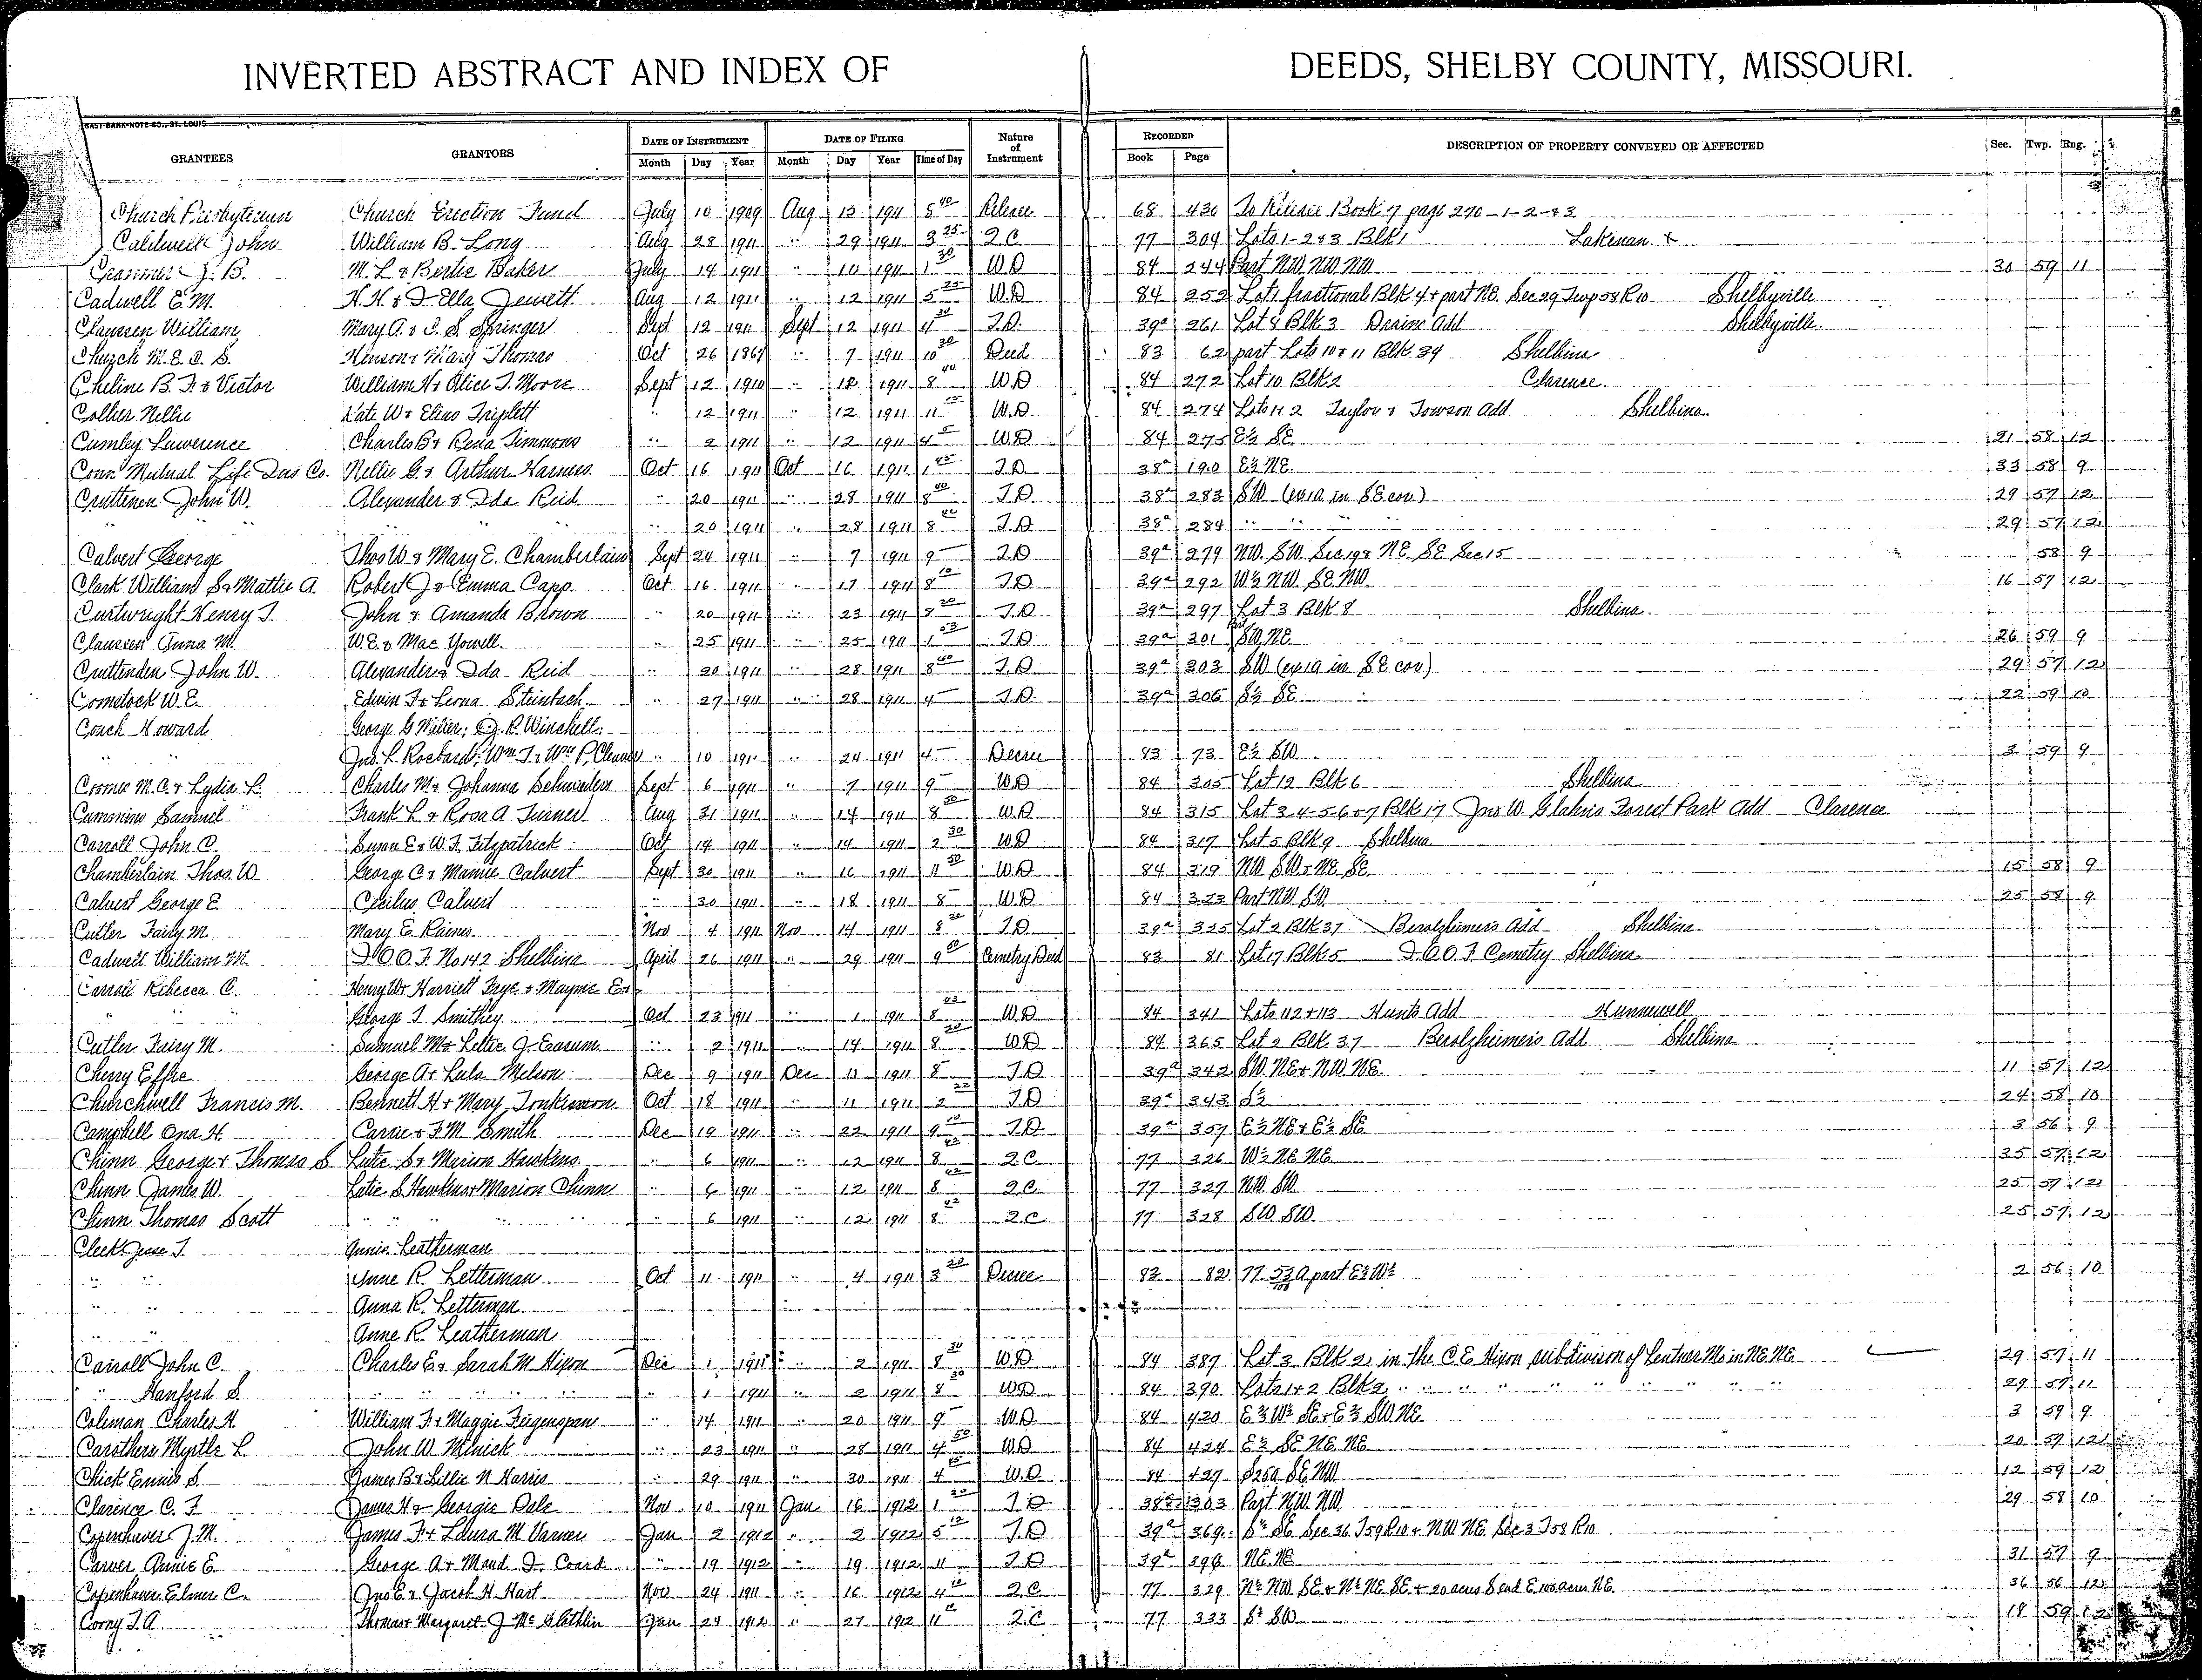 INVERTED ABSTRACT AND INDEX OF DEEDS, SHELBY COUNTY, MISSOURI.
EAST BANK-NOTE CO., ST. LOUIS
GRANTEES GRANTORS DATE OF INSTRUMENT DATE OF FILING Nature of Instrument RECORDED DESCRIPTION OF PROPERTY CONVEYED OR AFFECTED Sec. Twp. Rng.
Month Day Year Month Day Year Time of Day Book Page
Church Presbyterian Church Erection Fund July 10 1909 Aug 15 1911 5 40 Release 68 430 To Release Book 7 page 270-1-2-&3
Caldwell John William B. Long Aug 28 1911 " 29 1911 3 25 Q.C 77 304 Lots 1-2&3 Blk 1 Lakenan
J. B. M. L. & Bertie Baker July 14 1911 " 10 1911 1 30 W.D 84 244 Part NW NW NW 30 59 11
Cadwell E. M. H. H. & I. Ella Jewett Aug 12 1911 " 12 1911 5 25 W.D 84 252 Lot 1 fractional Blk 4 & part NE Sec 29 Twp 58 R 10 Shelbyville
Claussen William Mary A. & I. S. Springer Sept 12 1911 Sept 12 1911 4 30 T.D. 39a 261 Lot 8 Blk 3 Drains Add Shelbyville
Church M. E. C. S. Henson & Mary Thomas Oct 26 1867 " 7 1911 10 30 Deed 83 62 part Lots 10 & 11 Blk 34 Shelbina
Cheline B. F. & Victor William H & Alice T. Moore Sept 12 1910 " 12 1911 8 40 W.D 84 272 Lot 10 Blk 2 Clarence.
Collier Nellie Kate W & Elias Triplett " 12 1911 " 12 1911 11 W.D. 84 274 Lots 1 & 2 Taylor & Towson Add Shelbina.
Cumley Lawerence Charles B & Rena Simmons " 2 1911 " 12 1911 4 5 W.D 84 275 E½ SE 21 58 12
Conn Mutual Life Ins Co. Nellie G. & Arthur Harness Oct 16 1911 Oct 16 1911 1 45 T.D 38a 190 E½ NE 33 58 9
John W. Alexander & Ida Reid " 20 1911 " 28 1911 8 40 T.D 38a 283 SW (ex 1a in SE cor) 29 57 12
" " " 20 1911 " 28 1911 8 40 T.D. 38a 284 " " " 29 57 12
Calvert George Thos W. & Mary E. Chamberlain Sept 24 1911 " 7 1911 9 T.D 39a 279 NW. SW. Sec 19 & NE. SE Sec 15 58 9
Clark William S & Mattie A. Robert J & Emma Capp Oct 16 1911 " 17 1911 8 10 T.D 39a 292 W½ NW. SE NW. 16 57 12
Curtwright Henry T. John & Amanda Brown " 20 1911 " 23 1911 8 20 T.D 39a 297 Lot 3 Blk 8 Shelbina
Claussen Anna M. W.E. & Mae Yowell " 25 1911 " 25 1911 1 53 T.D 39a 301 Part SW. NE 26 59 9
Cruttenden John W. Alexander & Ida Reid " 20 1911 " 28 1911 8 40 T.D 39a 303 SW (ex 1a in SE cor) 29 57 12
Comstock W. E. Edwin F & Leona Steinbach " 27 1911 " 28 1911 4 T.D. 39a 306 S½ SE 22 59 10
Couch Howard George G Miller; R. Winchell;
" Jno. L. Rochard; Wm T. & Wm P. " 10 1911 " 24 1911 4 Decree 83 73 E½ SW 3 59 9
Coomes M. C. & Lydia L. Charles M & Johanna Schwieders Sept 6 1911 " 7 1911 9 W.D 84 305 Lot 12 Blk 6 Shelbina
Cummins Samuel Frank L & Rosa A Turner Aug 31 1911 " 14 1911 8 30 W.D 84 315 Lot 3-4-5-6&7 Blk 17 Jno W Glahns Forest Park Add Clarence
Carroll John C. Susan E & W. F. Fitzpatrick Oct 14 1911 " 14 1911 2 30 W.D 84 317 Lot 5 Blk 9 Shelbina
Chamberlain Thos. W. George C & Mamie Calvert Sept 30 1911 " 16 1911 11 50 W.D 84 319 NW SW & NE SE 15 58 9
Calvert George E Cecilus Calvert " 30 1911 " 18 1911 8 W.D 84 323 Part NW SW 25 58 9
Cutler Fairy M Mary E. Raines Nov 4 1911 Nov 14 1911 8 20 T.D 39a 325 Lot 2 Blk 37 Berolzheimers Add Shelbina
Cadwell William M I O O F No 142 Shelbina April 26 1911 " 29 1911 9 50 Cemetry Deed 83 81 Lot 17 Blk 5 I O O F Cemetry Shelbina
Carroll Rebecca C. Henry W & Harriett Frye & Mayme E &
" " George T Smithey Oct 23 1911 " 1 1911 8 43 W.D 84 341 Lots 112 & 113 Hunts Add Hunnewell
Cutler Fairy M. Samuel M & Lettie J. Easum " 2 1911 " 14 1911 8 20 W.D 84 365 Lot 2 Blk 37 Berolzheimers Add Shelbina
Cherry Effie George A & Lula Melson Dec 9 1911 Dec 11 1911 8 T.D 39a 342 SW. NE & NW NE 11 57 12
Churchwell Francis M. Bennett H & Mary Tonkinson Oct 18 1911 " 11 1911 2 22 T.D 39a 343 S½ 24 58 10
Campbell Ona H. Carrie & F. M Smith Dec 19 1911 " 22 1911 9 10 T.D 39a 357 E½ NE & E½ SE 3 56 9
Chinn George & Thomas S Lutie S & Marion Hawkins " 6 1911 " 12 1911 8 42 Q.C 77 326 W½ NE NE 35 57 12
Chinn James W. Latie S Hawkins & Marion Chinn " 6 1911 " 12 1911 8 42 Q.C. 77 327 NW. SW 25 57 12
Chinn Thomas Scott " " " " 6 1911 " 12 1911 8 42 Q.C 77 328 SW SW. 25 57 12
Cleek Jesse T. Annie Leatherman
" " Anne R. Letterman Oct 11 1911 " 4 1911 3 20 Decree 83 82 77 53/100 A part E½ W½ 2 56 10
" " Anna R. Letterman
" " Anne R. Leatherman
Carroll John C. Charles E & Sarah M Hixon Dec 1 1911 " 2 1911 8 30 W.D 84 387 Lot 3 Blk 2 in the C. E Hixon subdivision of Lentner Mo in NE NE 29 57 11
" Hanford S " " " " " 1 1911 " 2 1911 8 30 W.D 84 390 Lots 1 & 2 Blk 2 " " " " " " " " 29 57 11
Coleman Charles H. William F & Maggie Feigenspan " 14 1911 " 20 1911 9 W.D 84 420 E½ W½ SE & E½ SW NE 3 59 9
Carothers Myrtle L John W Minick " 23 1911 " 28 1911 4 50 W.D 84 424 E½ SE NE NE 20 57 12
Chick Ennis S. James B & Lillie N Harris " 29 1911 " 30 1911 4 45 W.D. 84 427 S 25a SE NW 12 59 12
Clarence C. F James H & Georgie Dale Nov 10 1911 Jan 16 1912 1 20 T.D 38a 303 Part NW. NW. 29 58 10
Copenhaver J. M. James F & Laura M Varner Jan 2 1912 " 2 1912 5 12 T.D 39a 369 S½ SE Sec 36 T59 R10 & NW NE Sec 3 T58 R10
Carver Annie E George A & Maud I. Coard " 19 1912 " 19 1912 11 T.D 39a 396 NE NE 31 57 9
Copenhaver Elmer C. Jno E & Jacob H. Hart Nov 24 1911 " 16 1912 4 10 Q.C 77 329 N½ NW SE & N½ NE SE & 20 acres S end E 100 acres NE. 36 56 12
Corny T. A. Thomas & Margaret J Jan 24 1912 " 27 1912 11 Q.C 77 333 S½ SW 18 59 12